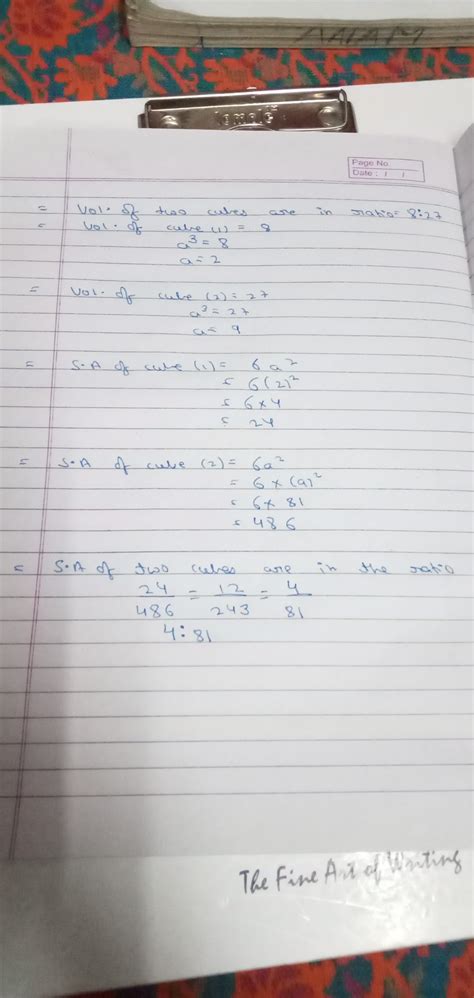 Page No.
Date : / /
= Vol. of two cubes are in ratio= 8:27
= Vol. of cube (1) = 8
a³ = 8
a = 2
= Vol. of cube (2) = 27
a³ = 27
a = 9
= S.A of cube (1) = 6a²
= 6(2)²
= 6×4
= 24
= S.A of cube (2) = 6a²
= 6 × (9)²
= 6× 81
= 486
= S.A of two cubes are in the ratio
24/486 = 12/243 = 4/81
4:81
The Fine Art of Writing